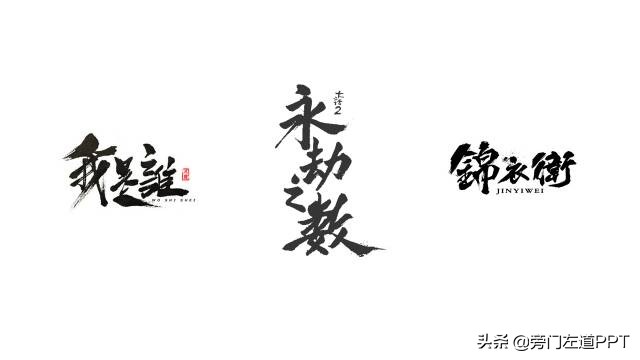 我是誰
WO SHI SHEI
永劫之数
錦衣衛
JINYIWEI
头条 @旁门左道PPT